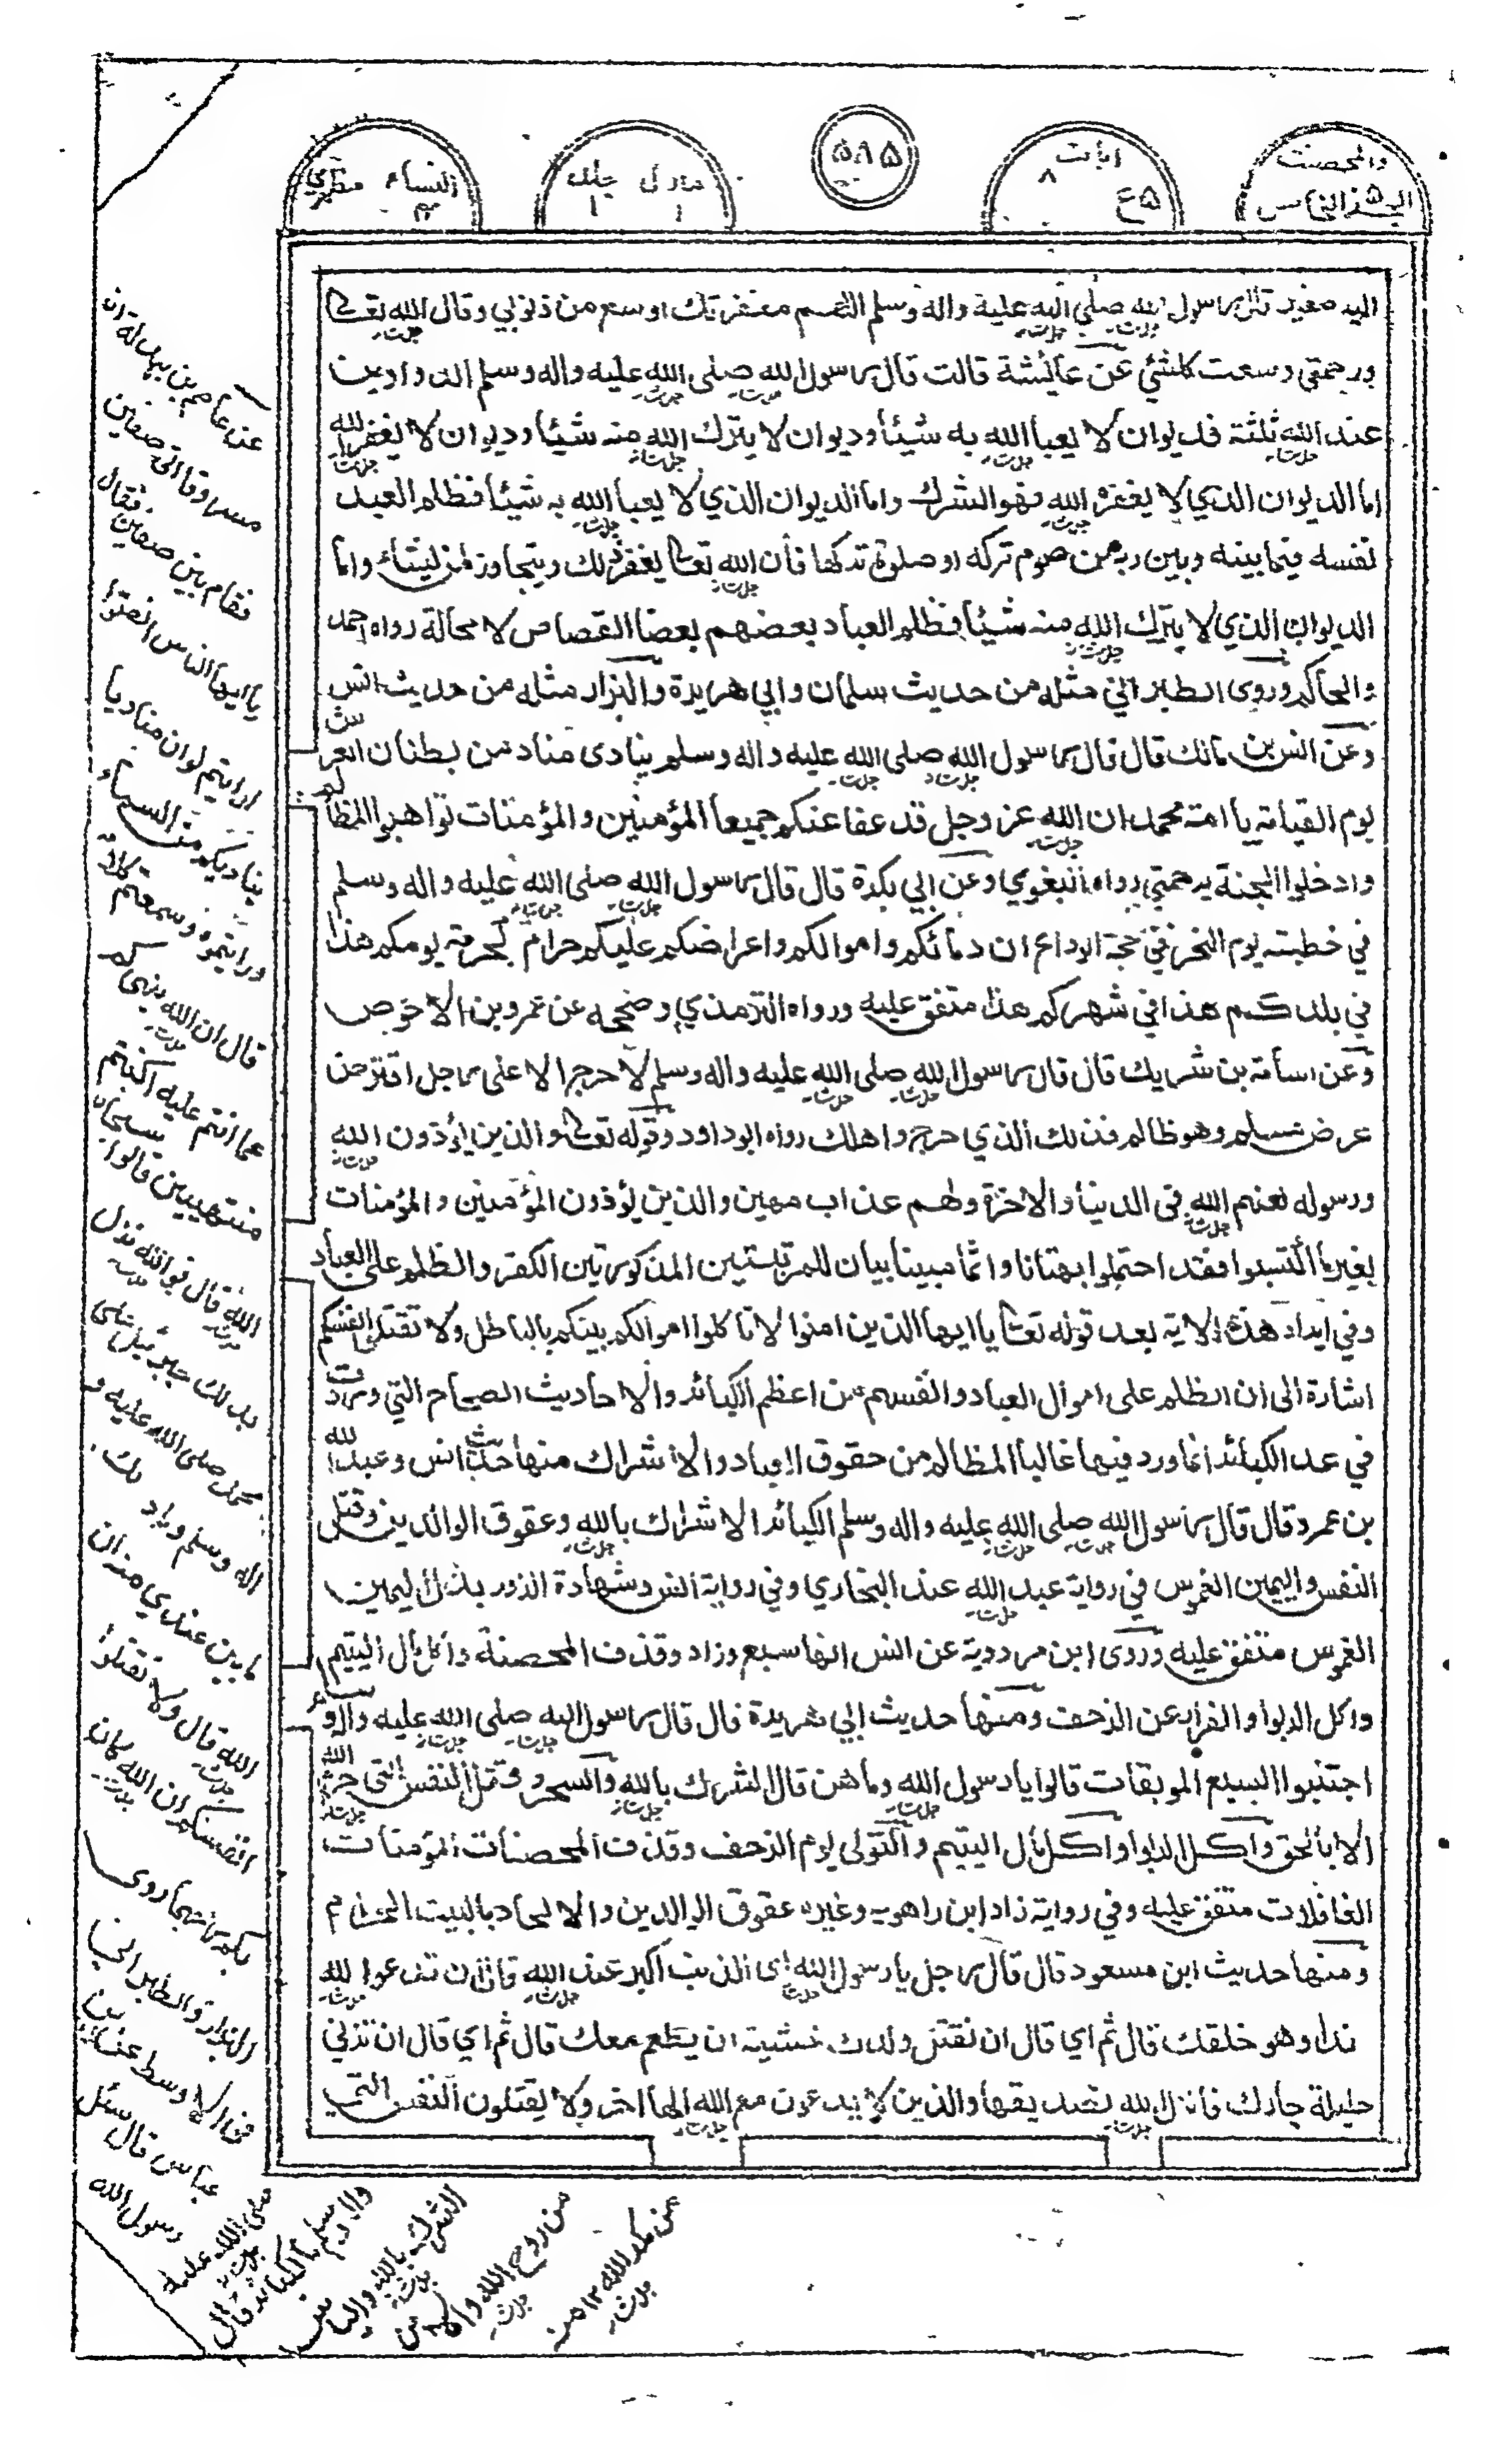 والمحصنت
الجزء الخامس
ايات
٨
٥ع
٥٨٥
منزل جلد
١ ١
النساء مظهري
٤
اليه صغير قال رسول الله صلى الله عليه واله وسلم اللهم مغفرتك اوسع من ذنوبي وقال الله تعالى
ورحمتي وسعت كل شئ عن عائشة قالت قال رسول الله صلى الله عليه واله وسلم الدواوين
عند الله ثلثة فديوان لا يعبأ الله به شيئا وديوان لا يترك الله منه شيئا وديوان لا يغفر الله
اما الديوان الذي لا يغفره الله فهو الشرك واما الديوان الذي لا يعبأ الله به شيئا فظلم العبد
نفسه فيما بينه وبين ربه من صوم تركه او صلوة تركها فان الله تعالى يغفر ذلك ويتجاوز لمن يشاء واما
الديوان الذي لا يترك الله منه شيئا فظلم العباد بعضهم بعضا القصاص لا محالة رواه احمد
والحاكم وروى الطبراني مثله من حديث سلمان وابي هريرة والبزار مثله من حديث انس
وعن انس بن مالك قال قال رسول الله صلى الله عليه واله وسلم ينادى مناد من بطنان العرش
يوم القيامة يا امة محمد ان الله عز وجل قد عفا عنكم جميعا المؤمنين والمؤمنات تواهبوا المظالم
وادخلوا الجنة برحمتي رواه البغوي وعن ابي بكرة قال قال رسول الله صلى الله عليه واله وسلم
في خطبته يوم النحر في حجة الوداع ان دمائكم واموالكم واعراضكم عليكم حرام كحرمة يومكم هذا
في بلدكم هذا في شهركم هذا متفق عليه ورواه الترمذي وصححه عن عمرو بن الاحوص
وعن اسامة بن شريك قال قال رسول الله صلى الله عليه واله وسلم لا حرج الا على رجل اقترض
عرض مسلم وهو ظالم فذلك الذي حرج واهلك رواه ابوداود وقوله تعالى والذين يؤذون الله
ورسوله لعنهم الله في الدنيا والاخرة ولهم عذاب مهين والذين يؤذون المؤمنين والمؤمنات
بغير ما اكتسبوا فقد احتملوا بهتانا واثما مبينا بيان للمرتبتين المذكورتين الكفر والظلم على العباد
وفي ايراد هذه الاية بعد قوله تعالى يا ايها الذين امنوا لا تاكلوا اموالكم بينكم بالباطل ولا تقتلوا انفسكم
اشارة الى ان الظلم على اموال العباد وانفسهم من اعظم الكبائر والاحاديث الصحاح التي وردت
في عد الكبائر انما ورد فيها غالبا المظالم من حقوق العباد والاشراك منها حديث انس وعبد الله
بن عمرو قال قال رسول الله صلى الله عليه واله وسلم الكبائر الاشراك بالله وعقوق الوالدين وقتل
النفس واليمين الغموس في رواية عبد الله عند البخاري وفي رواية انس وشهادة الزور بدل اليمين
الغموس متفق عليه وروى ابن مردوية عن انس انها سبع وزاد وقذف المحصنة واكل مال اليتيم
واكل الربوا والفرار عن الزحف ومنها حديث ابي هريرة قال قال رسول الله صلى الله عليه واله وسلم
اجتنبوا السبع الموبقات قالوا يا رسول الله وما هن قال الشرك بالله والسحر وقتل النفس التي حرم الله
الا بالحق واكل الربوا واكل مال اليتيم والتولى يوم الزحف وقذف المحصنات المؤمنات
الغافلات متفق عليه وفي رواية زاد ابن راهويه وغيره عقوق الوالدين والالحاد بالبيت الحرام
ومنها حديث ابن مسعود قال قال رجل يا رسول الله اى الذنب اكبر عند الله قال ان تدعوا لله
ندا وهو خلقك قال ثم اي قال ان تقتل ولدك خشية ان يطعم معك قال ثم اي قال ان تزني
حليلة جارك فانزل الله تصديقها والذين لا يدعون مع الله الها اخر ولا يقتلون النفس التي
عن عاصم بن بهدلة ان
مسروقا اتى صفين
فقام بين صفين فقال
يا ايها الناس انصتوا
ارايتم لو ان مناديا
يناديكم من السماء
ورايتموه وسمعتم كلامه
قال ان الله ينهىكم
عما انتم عليه اكنتم
منتهيين قالوا سبحان
الله قال فوالله نزل
بذلك جبرئيل على
محمد صلى الله عليه و
اله وسلم وما ذلك
بابين عندي منه ان
الله قال ولا تقتلوا
انفسكم ان الله كان
بكم رحيما روى
البزار والطبراني
في الاوسط عن ابن
عباس قال سئل
رسول الله
صلى الله عليه
واله وسلم ما الكبائر قال
الشرك بالله والياس
من روح الله والامن
من مكر الله ١٢ منه